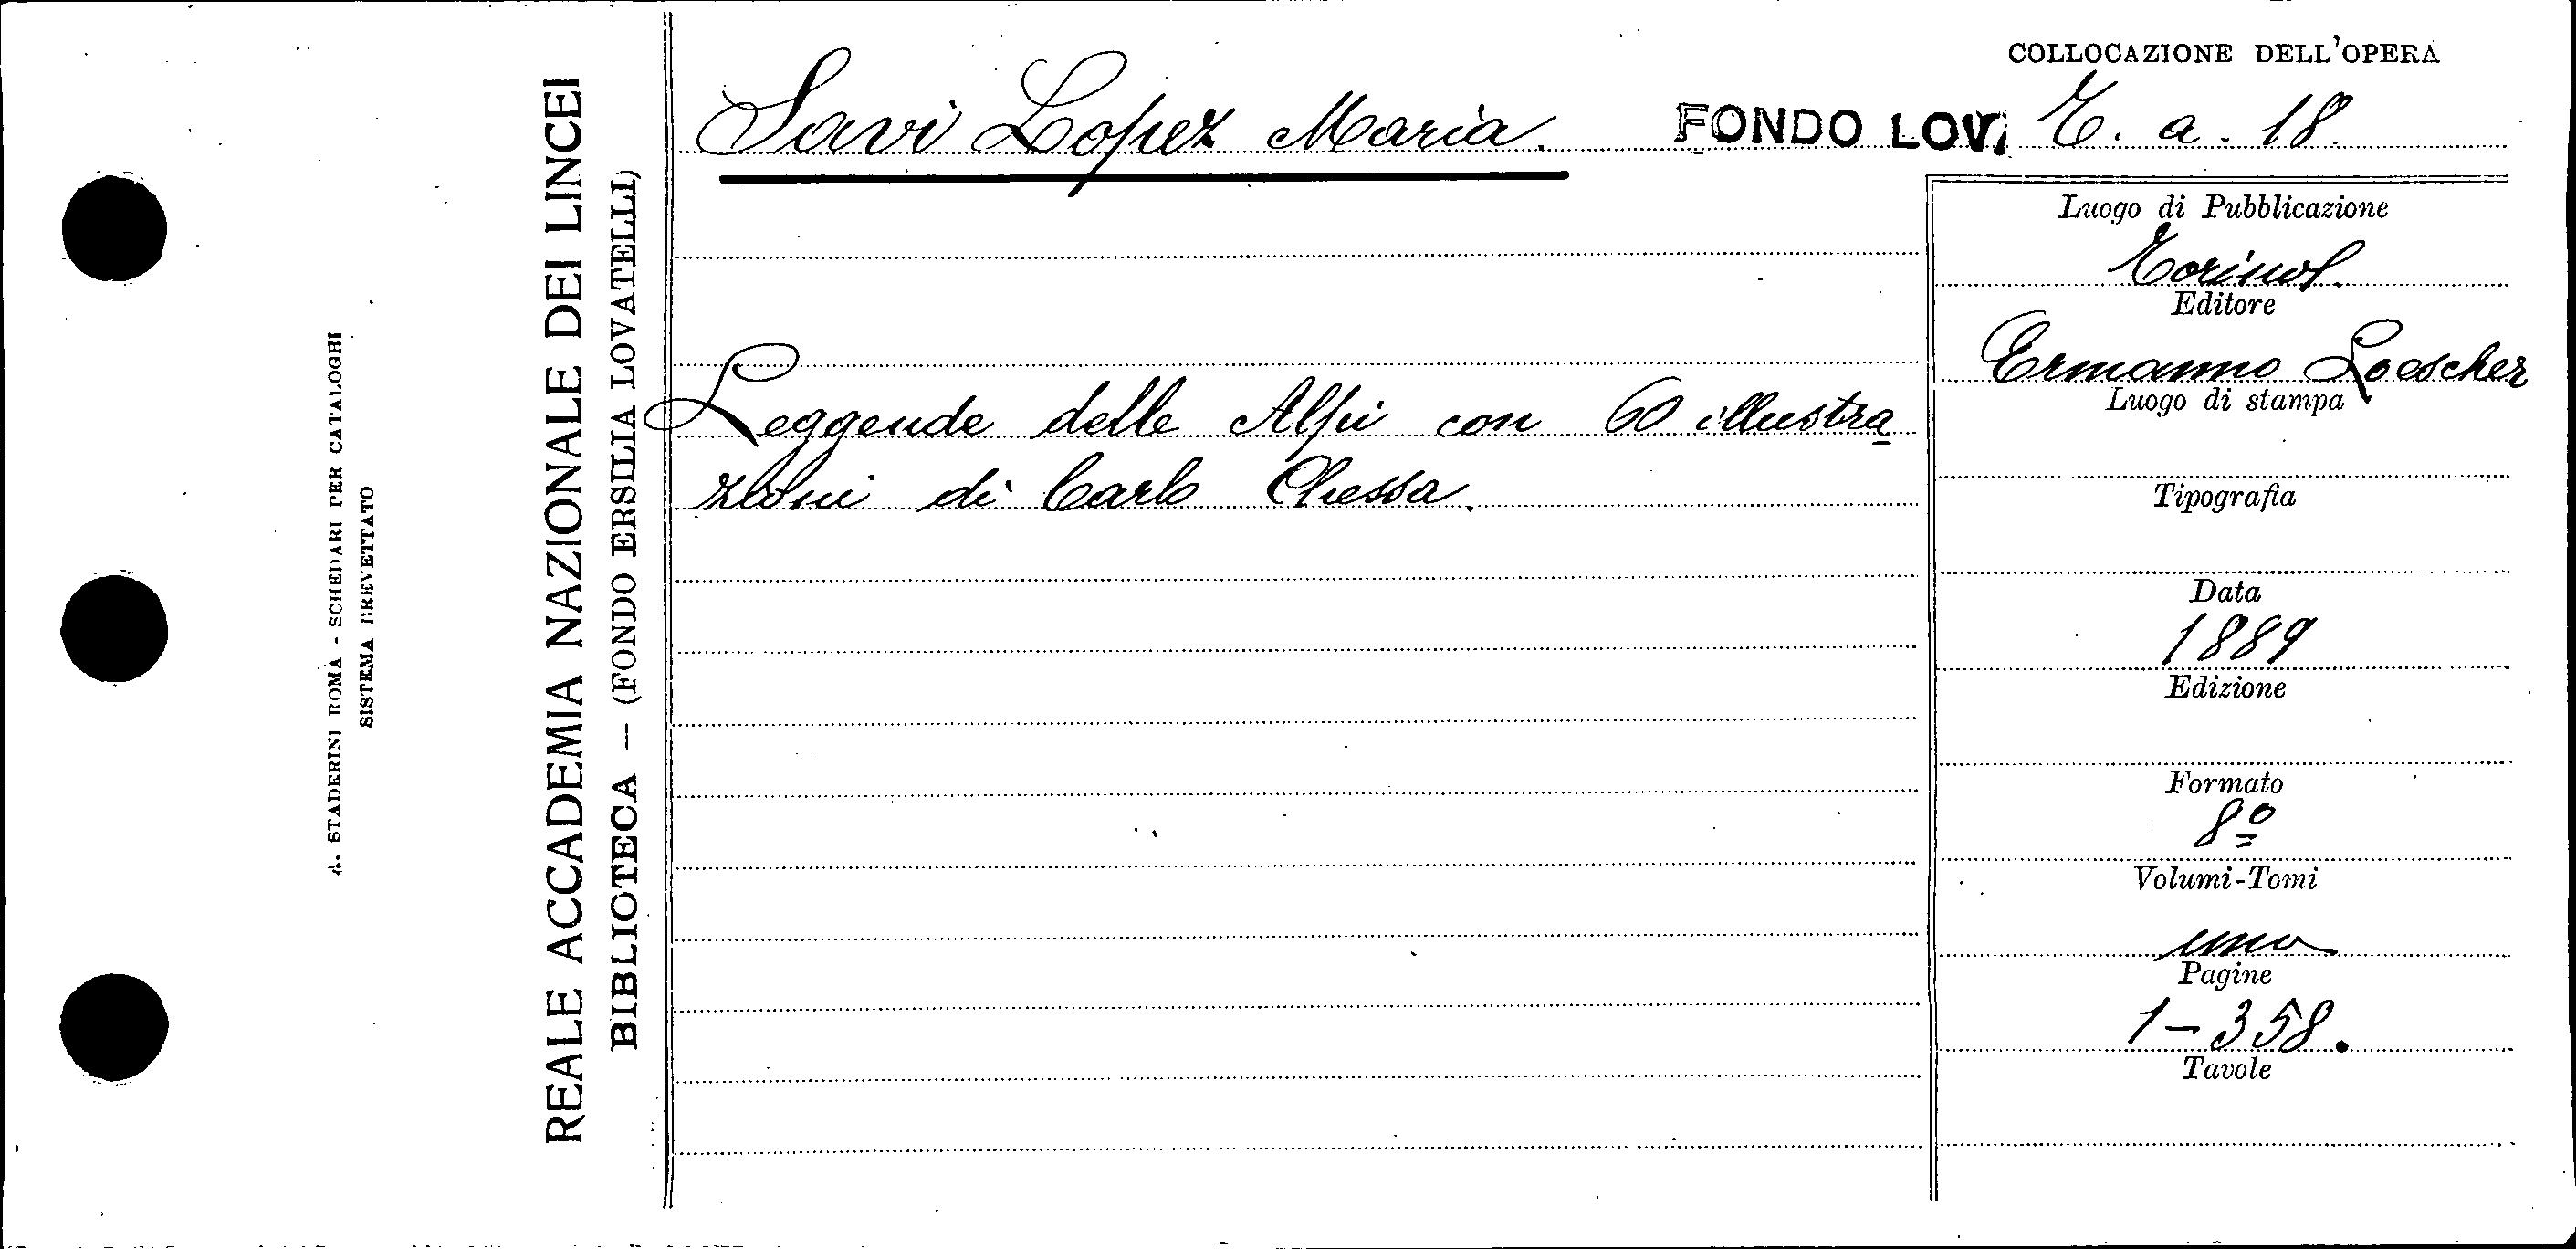 COLLOCAZIONE DELL'OPERA
Savi Lopez Maria. FONDO LOV. E. a. 18.
Leggende delle Alpi con 60 illustra
zioni di Carlo Chessa.
Luogo di Pubblicazione
Torino.
Editore
Ermanno Loescher
Luogo di stampa
Tipografia
Data
1889
Edizione
Formato
8º
Volumi-Tomi
uno
Pagine
1-358.
Tavole
REALE ACCADEMIA NAZIONALE DEI LINCEI
BIBLIOTECA — (FONDO ERSILIA LOVATELLI)
A. STADERINI ROMA - SCHEDARI PER CATALOGHI
SISTEMA BREVETTATO